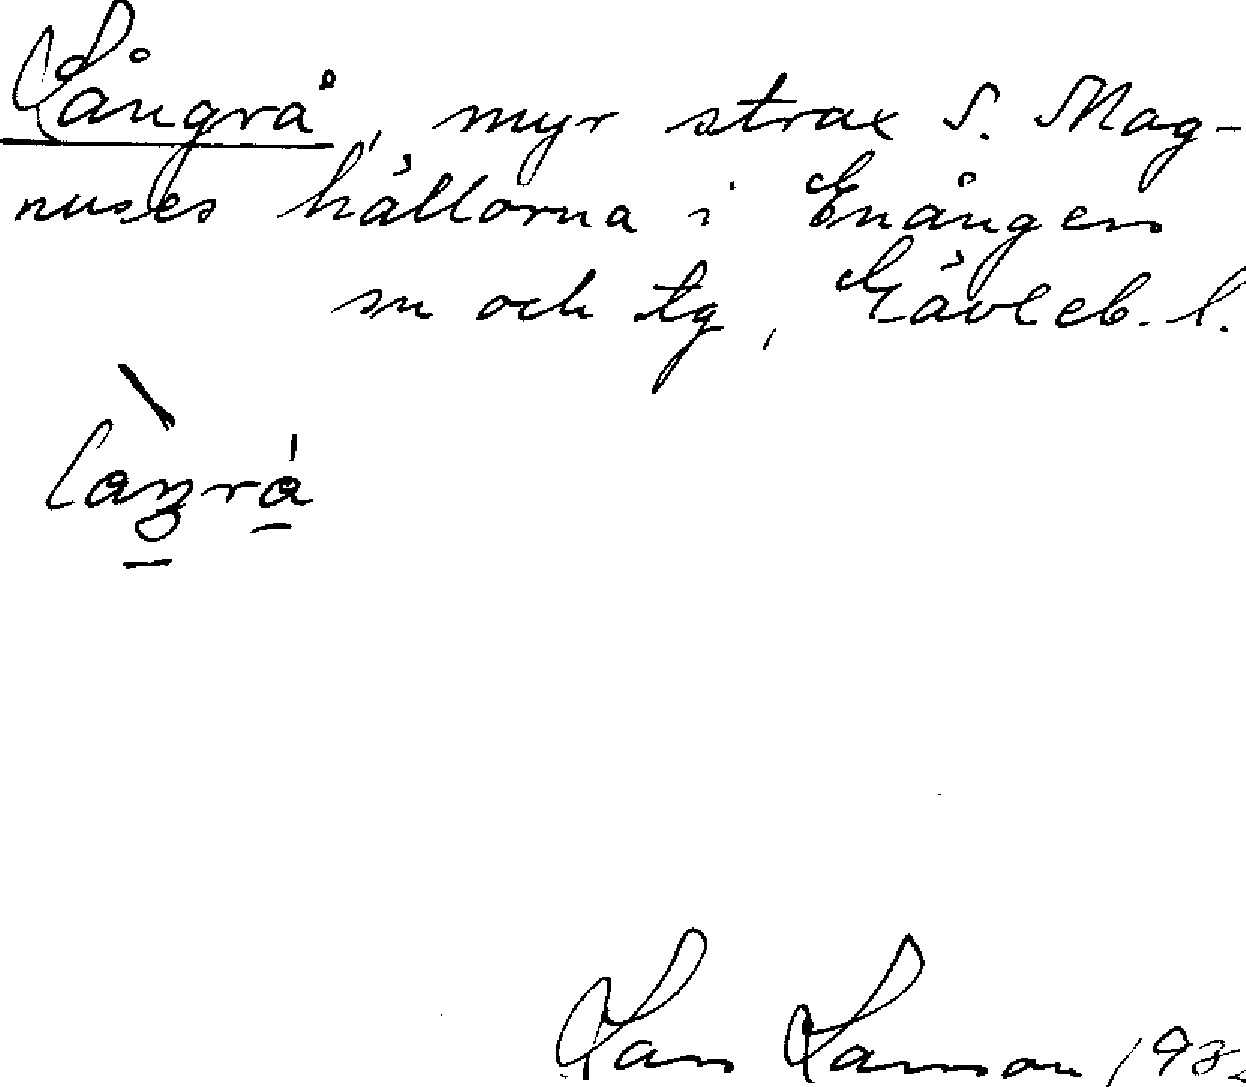 Långrå, myr strax S. Mag-
nuses hällorna i Enångers
sn och tg, Gävleb. l.
Lars Larsson